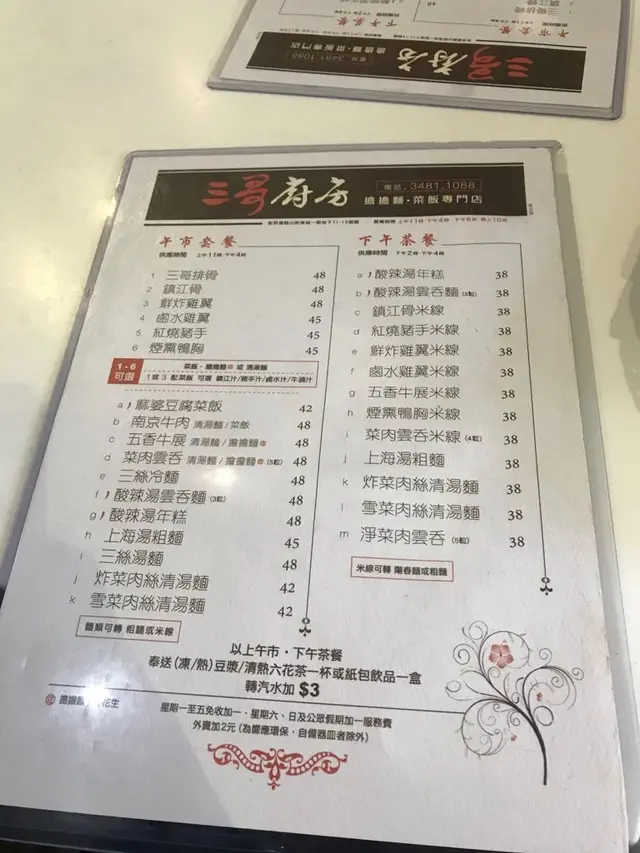 三哥廚房
電話 . 3481.1088
擔擔麵 · 菜飯專門店
午市套餐
供應時間 上午11時-下午4時
1 三哥排骨 48
2 鎮江骨 48
3 鮮炸雞翼 48
4 鹵水雞翼 45
5 紅燒豬手 45
6 煙熏鴨胸 45
1 - 6
可選
菜飯、擔擔麵 或 清湯麵
1或3 配菜飯 可選 鎮江汁/豬手汁/鹵水汁/牛腩汁
a 麻婆豆腐菜飯 42
b 南京牛肉 清湯麵/菜飯 48
c 五香牛展 清湯麵/擔擔麵 48
d 菜肉雲吞 清湯麵/擔擔麵 (5粒) 48
e 三絲冷麵 48
f 酸辣湯雲吞麵 (3粒) 48
g 酸辣湯年糕 48
h 上海湯粗麵 45
i 三絲湯麵 48
j 炸菜肉絲清湯麵 42
k 雪菜肉絲清湯麵 42
麵類可轉 粗麵或米線
下午茶餐
供應時間 下午2時-下午4時
a 酸辣湯年糕 38
b 酸辣湯雲吞麵 (3粒) 38
c 鎮江骨米線 38
d 紅燒豬手米線 38
e 鮮炸雞翼米線 38
f 鹵水雞翼米線 38
g 五香牛展米線 38
h 煙熏鴨胸米線 38
i 菜肉雲吞米線 (4粒) 38
j 上海湯粗麵 38
k 炸菜肉絲清湯麵 38
l 雪菜肉絲清湯麵 38
m 淨菜肉雲吞 (5粒) 38
米線可轉 陽春麵或粗麵
以上午市 · 下午茶餐
奉送 (凍/熱) 豆漿/清熱六花茶一杯或紙包飲品一盒
轉汽水加 $3
擔擔麵 花生
星期一至五免收加一．星期六、日及公眾假期加一服務費
外賣加2元 (為響應環保，自備器皿者除外)